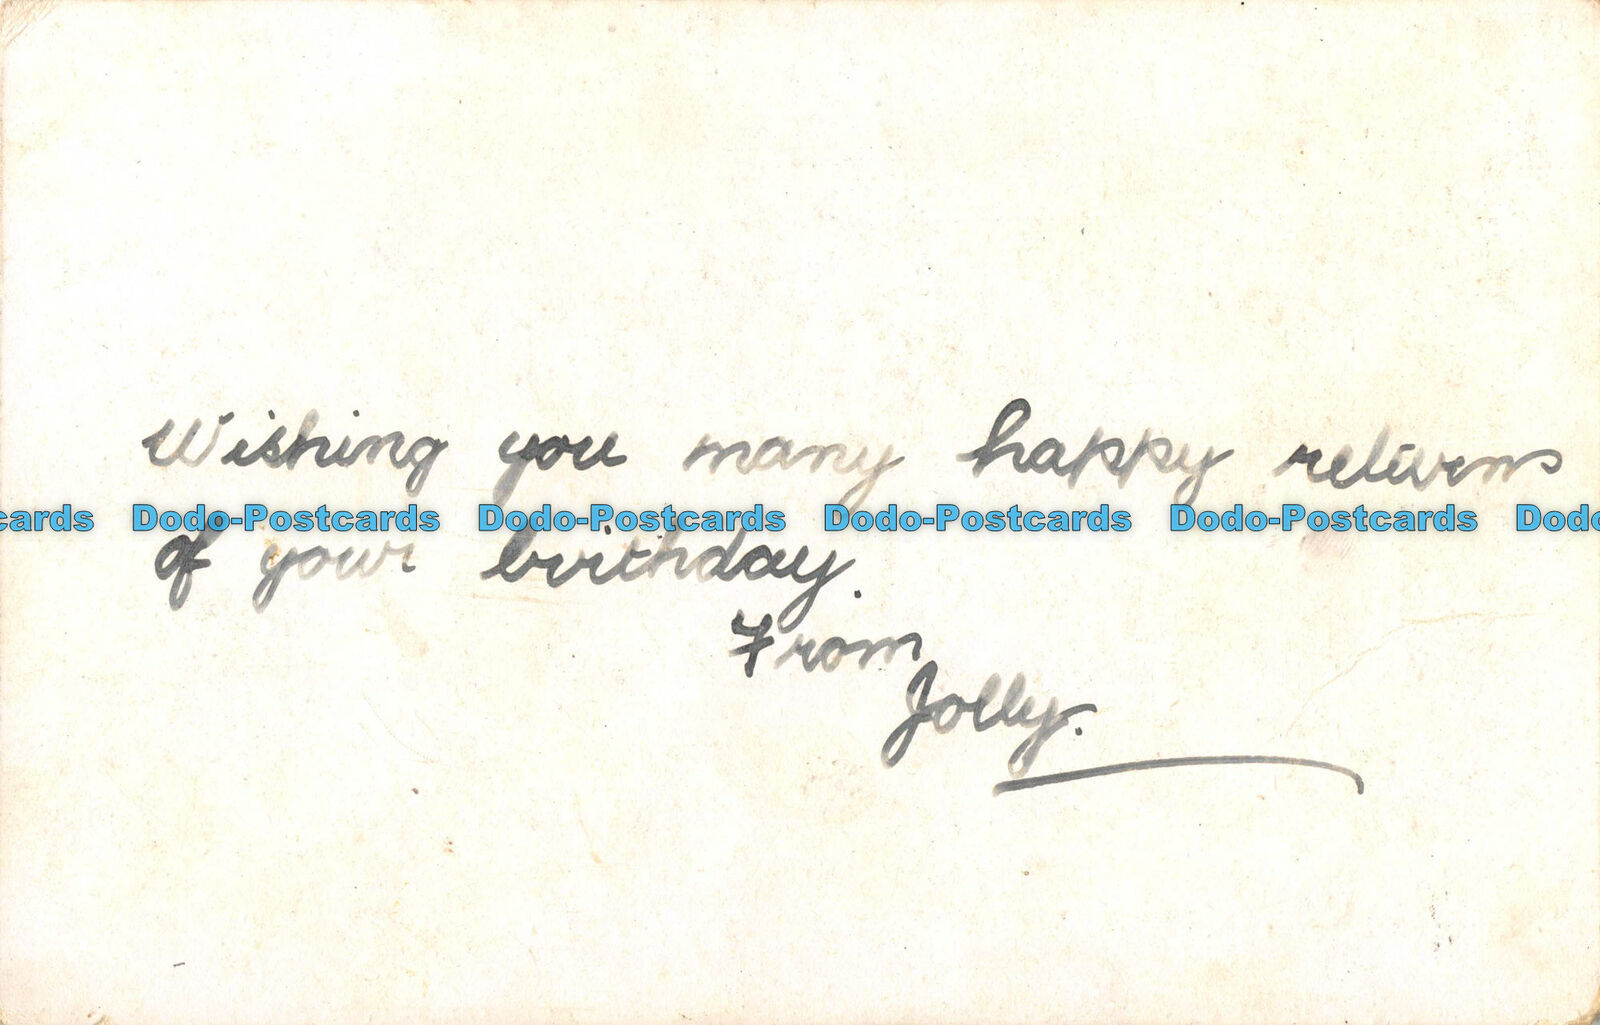 Wishing you many happy returns
cards Dodo-Postcards Dodo-Postcards Dodo-Postcards Dodo-Postcards Dodo
of your birthday.
From
Jolly.